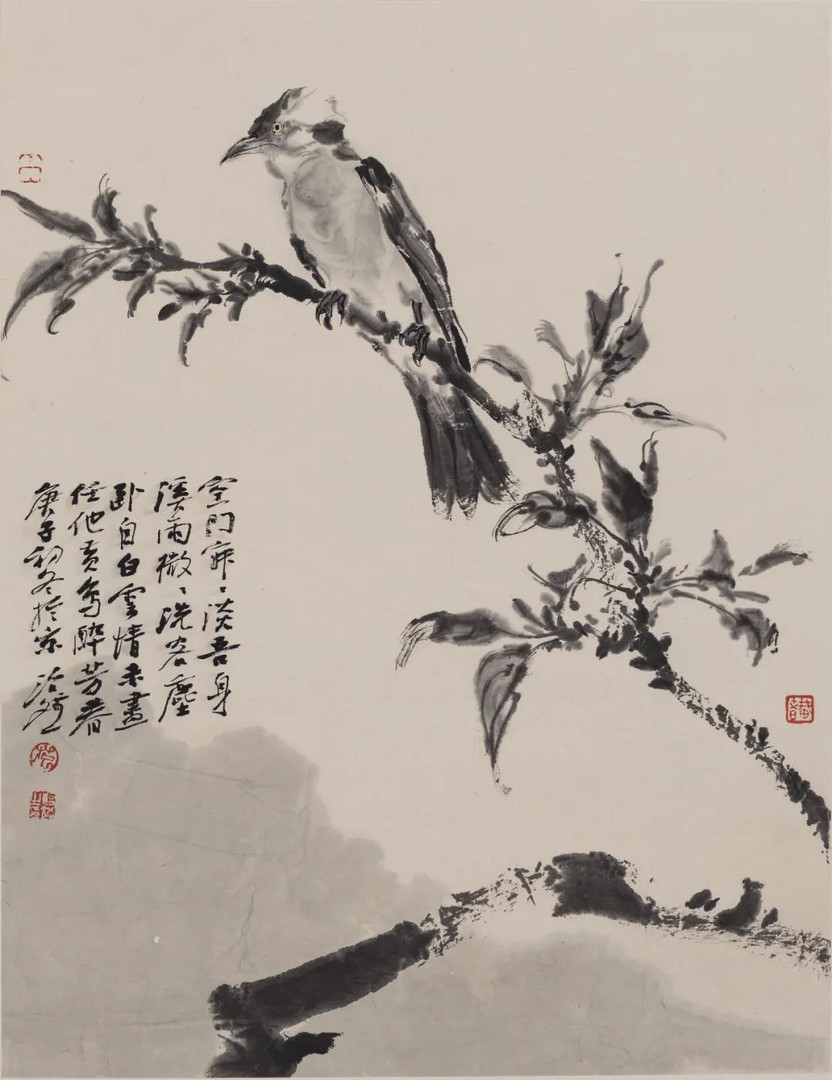 空門寂〻淡吾身
溪雨微〻洗客塵
卧向白雲情未盡
任他黃鳥醉芳春
庚子初冬於京